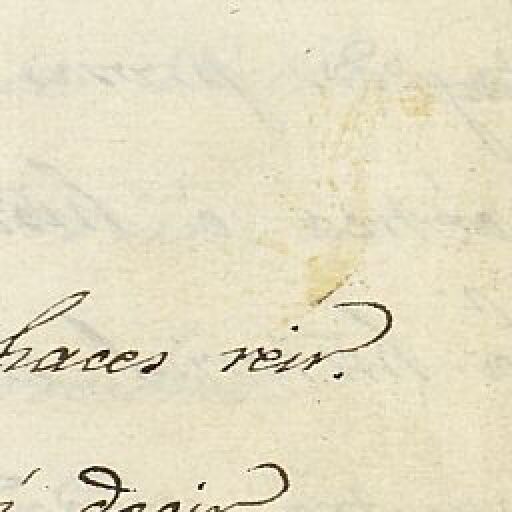 haces reir.
decir